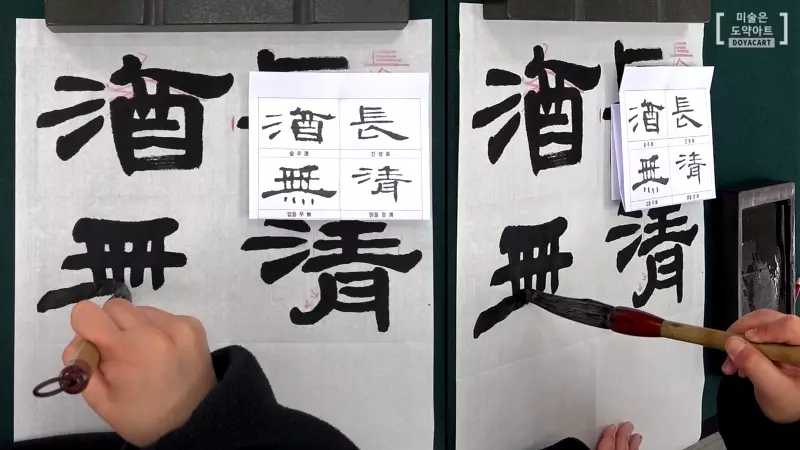 미술은
도약아트
DOYACART
酒 長
無 清
酒 長
술 주 酒 긴 장 長
無 清
없을 무 無 맑을 청 清
酒 長
無 清
酒 長
無 清